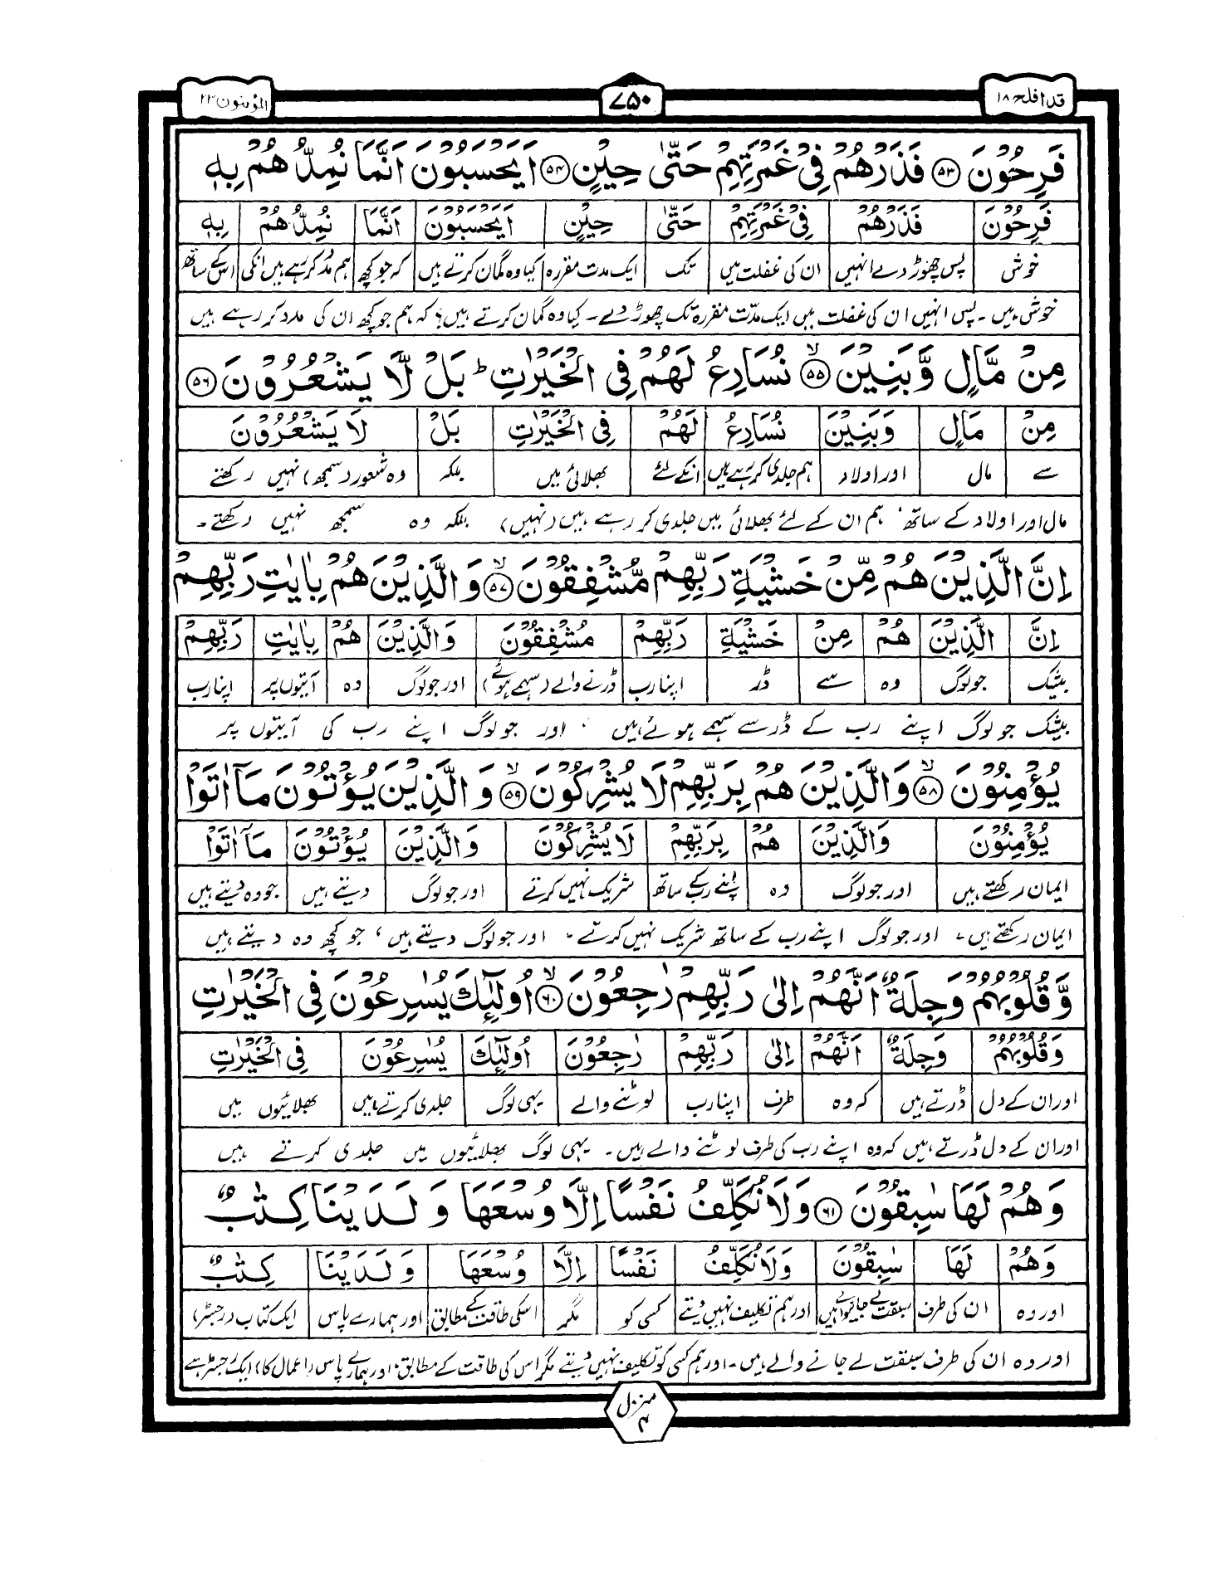 قد افلح ۱۸
۷۵۰
المؤمنون ۲۳
فَرِحُوْنَ ﴿۵۳﴾ فَذَرْهُمْ فِىْ غَمْرَتِهِمْ حَتّٰى حِيْنٍ ﴿۵۴﴾ اَيَحْسَبُوْنَ اَنَّمَا نُمِدُّهُمْ بِهٖ
فَرِحُوْنَ فَذَرْهُمْ فِىْ غَمْرَتِهِمْ حَتّٰى حِيْنٍ اَيَحْسَبُوْنَ اَنَّمَا نُمِدُّهُمْ بِهٖ
خوش پس چھوڑ دے انہیں ان کی غفلت میں تک ایک مدت مقررہ کیا وہ گمان کرتے ہیں کہ جو کچھ ہم مدد کر رہے ہیں انکی اسکے ساتھ
خوش ہیں ۔ پس انہیں ان کی غفلت میں ایک مدّت مقررہ تک چھوڑ دے ۔ کیا وہ گمان کرتے ہیں؟ کہ ہم جو کچھ ان کی مدد کر رہے ہیں
مِنْ مَّالٍ وَّبَنِيْنَ ﴿۵۵﴾ۙ نُسَارِعُ لَهُمْ فِى الْخَيْرٰتِ ؕ بَلْ لَّا يَشْعُرُوْنَ ﴿۵۶﴾
مِنْ مَالٍ وَبَنِيْنَ نُسَارِعُ لَهُمْ فِى الْخَيْرٰتِ بَلْ لَا يَشْعُرُوْنَ
سے مال اور اولاد ہم جلدی کر رہے ہیں انکے لئے بھلائی میں بلکہ وہ شعور (سمجھ) نہیں رکھتے
مال اور اولاد کے ساتھ ، ہم ان کے لئے بھلائی میں جلدی کر رہے ہیں (نہیں) بلکہ وہ سمجھ نہیں رکھتے ۔
اِنَّ الَّذِيْنَ هُمْ مِّنْ خَشْيَةِ رَبِّهِمْ مُّشْفِقُوْنَ ﴿۵۷﴾ۙ وَالَّذِيْنَ هُمْ بِاٰيٰتِ رَبِّهِمْ
اِنَّ الَّذِيْنَ هُمْ مِنْ خَشْيَةِ رَبِّهِمْ مُشْفِقُوْنَ وَالَّذِيْنَ هُمْ بِاٰيٰتِ رَبِّهِمْ
بیشک جو لوگ وہ سے ڈر اپنا رب ڈرنے والے (سہمے ہوئے) اور جو لوگ وہ آیتوں پر اپنا رب
بیشک جو لوگ اپنے رب کے ڈر سے سہمے ہوئے ہیں ، اور جو لوگ اپنے رب کی آیتوں پر
يُؤْمِنُوْنَ ﴿۵۸﴾ۙ وَالَّذِيْنَ هُمْ بِرَبِّهِمْ لَا يُشْرِكُوْنَ ﴿۵۹﴾ۙ وَالَّذِيْنَ يُؤْتُوْنَ مَاۤ اٰتَوْا
يُؤْمِنُوْنَ وَالَّذِيْنَ هُمْ بِرَبِّهِمْ لَا يُشْرِكُوْنَ وَالَّذِيْنَ يُؤْتُوْنَ مَاۤ اٰتَوْا
ایمان رکھتے ہیں اور جو لوگ وہ اپنے رب کے ساتھ شریک نہیں کرتے اور جو لوگ دیتے ہیں جو وہ دیتے ہیں
ایمان رکھتے ہیں ، اور جو لوگ اپنے رب کے ساتھ شریک نہیں کرتے ، اور جو لوگ دیتے ہیں ، جو کچھ وہ دیتے ہیں
وَّقُلُوْبُهُمْ وَجِلَةٌ اَنَّهُمْ اِلٰى رَبِّهِمْ رٰجِعُوْنَ ﴿۶۰﴾ۙ اُولٰٓئِكَ يُسٰرِعُوْنَ فِى الْخَيْرٰتِ
وَقُلُوْبُهُمْ وَجِلَةٌ اَنَّهُمْ اِلٰى رَبِّهِمْ رٰجِعُوْنَ اُولٰٓئِكَ يُسٰرِعُوْنَ فِى الْخَيْرٰتِ
اور ان کے دل ڈرتے ہیں کہ وہ طرف اپنا رب لوٹنے والے یہی لوگ جلدی کرتے ہیں بھلائیوں میں
اور ان کے دل ڈرتے ہیں کہ وہ اپنے رب کی طرف لوٹنے والے ہیں ۔ یہی لوگ بھلائیوں میں جلدی کرتے ہیں
وَهُمْ لَهَا سٰبِقُوْنَ ﴿۶۱﴾ وَلَا نُكَلِّفُ نَفْسًا اِلَّا وُسْعَهَا وَلَدَيْنَا كِتٰبٌ
وَهُمْ لَهَا سٰبِقُوْنَ وَلَا نُكَلِّفُ نَفْسًا اِلَّا وُسْعَهَا وَلَدَيْنَا كِتٰبٌ
اور وہ ان کی طرف سبقت لے جانیوالے ہیں اور ہم تکلیف نہیں دیتے کسی کو مگر اسکی طاقت کے مطابق اور ہمارے پاس ایک کتاب (رجسٹر)
اور وہ ان کی طرف سبقت لے جانے والے ہیں ۔ اور ہم کسی کو تکلیف نہیں دیتے مگر اس کی طاقت کے مطابق ، اور ہمارے پاس (اعمال کا) ایک رجسٹر ہے
منزل ۴